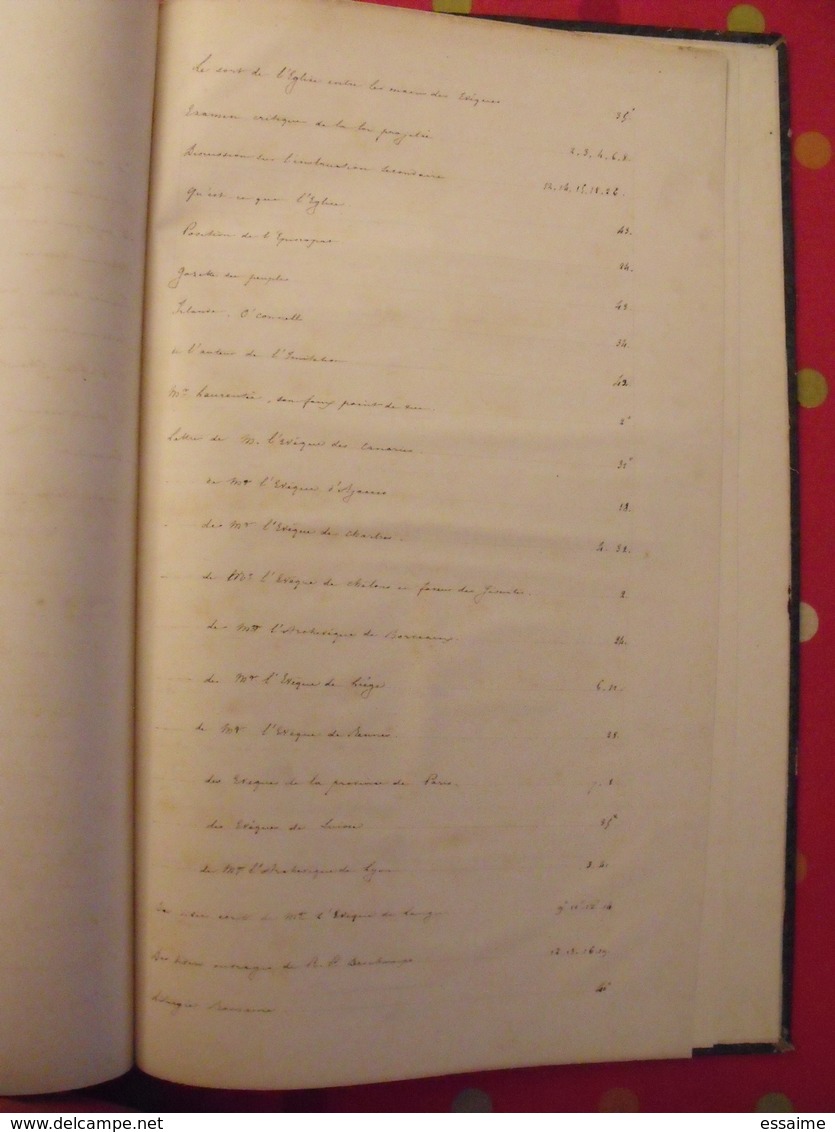 Le sort de l'Eglise entre les mains des Evêques 35
Examen critique de la loi projetée 2. 3. 4. 6. 8.
Discussion sur l'instruction secondaire 12. 14. 15. 18. 26.
Qu'est ce que l'Eglise 43.
Position de l'Episcopat 24.
gazette du peuple 43
Irlande. O'connell 34.
de l'auteur de l'Imitation 42
Mr Laurentie, son faux point de vue. 2
Lettre de M. l'Evêque des Canaries. 31
de Mr l'Evêque d'Ajaccio 18.
de Mr l'Evêque de Chartres. 4. 32.
de Mr l'Evêque de Châlons en faveur des Jésuites. 2.
de Mr l'Archevêque de Bordeaux. 24.
de Mr l'Evêque de Liège 6. 11.
de Mr l'Evêque de Rennes. 28.
des Evêques de la province de Paris. 7. 8.
des Evêques de Suisse 35
de Mr l'Archevêque de Lyon 3. 4.
écrit de Mr l'Evêque de Langres
Des ouvrages du R. P.
Liturgie Romaine
essaime